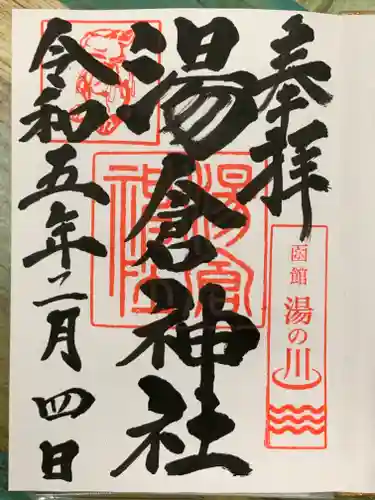 奉拝
函館
湯の川
湯倉神社
湯倉神社
令和五年二月四日